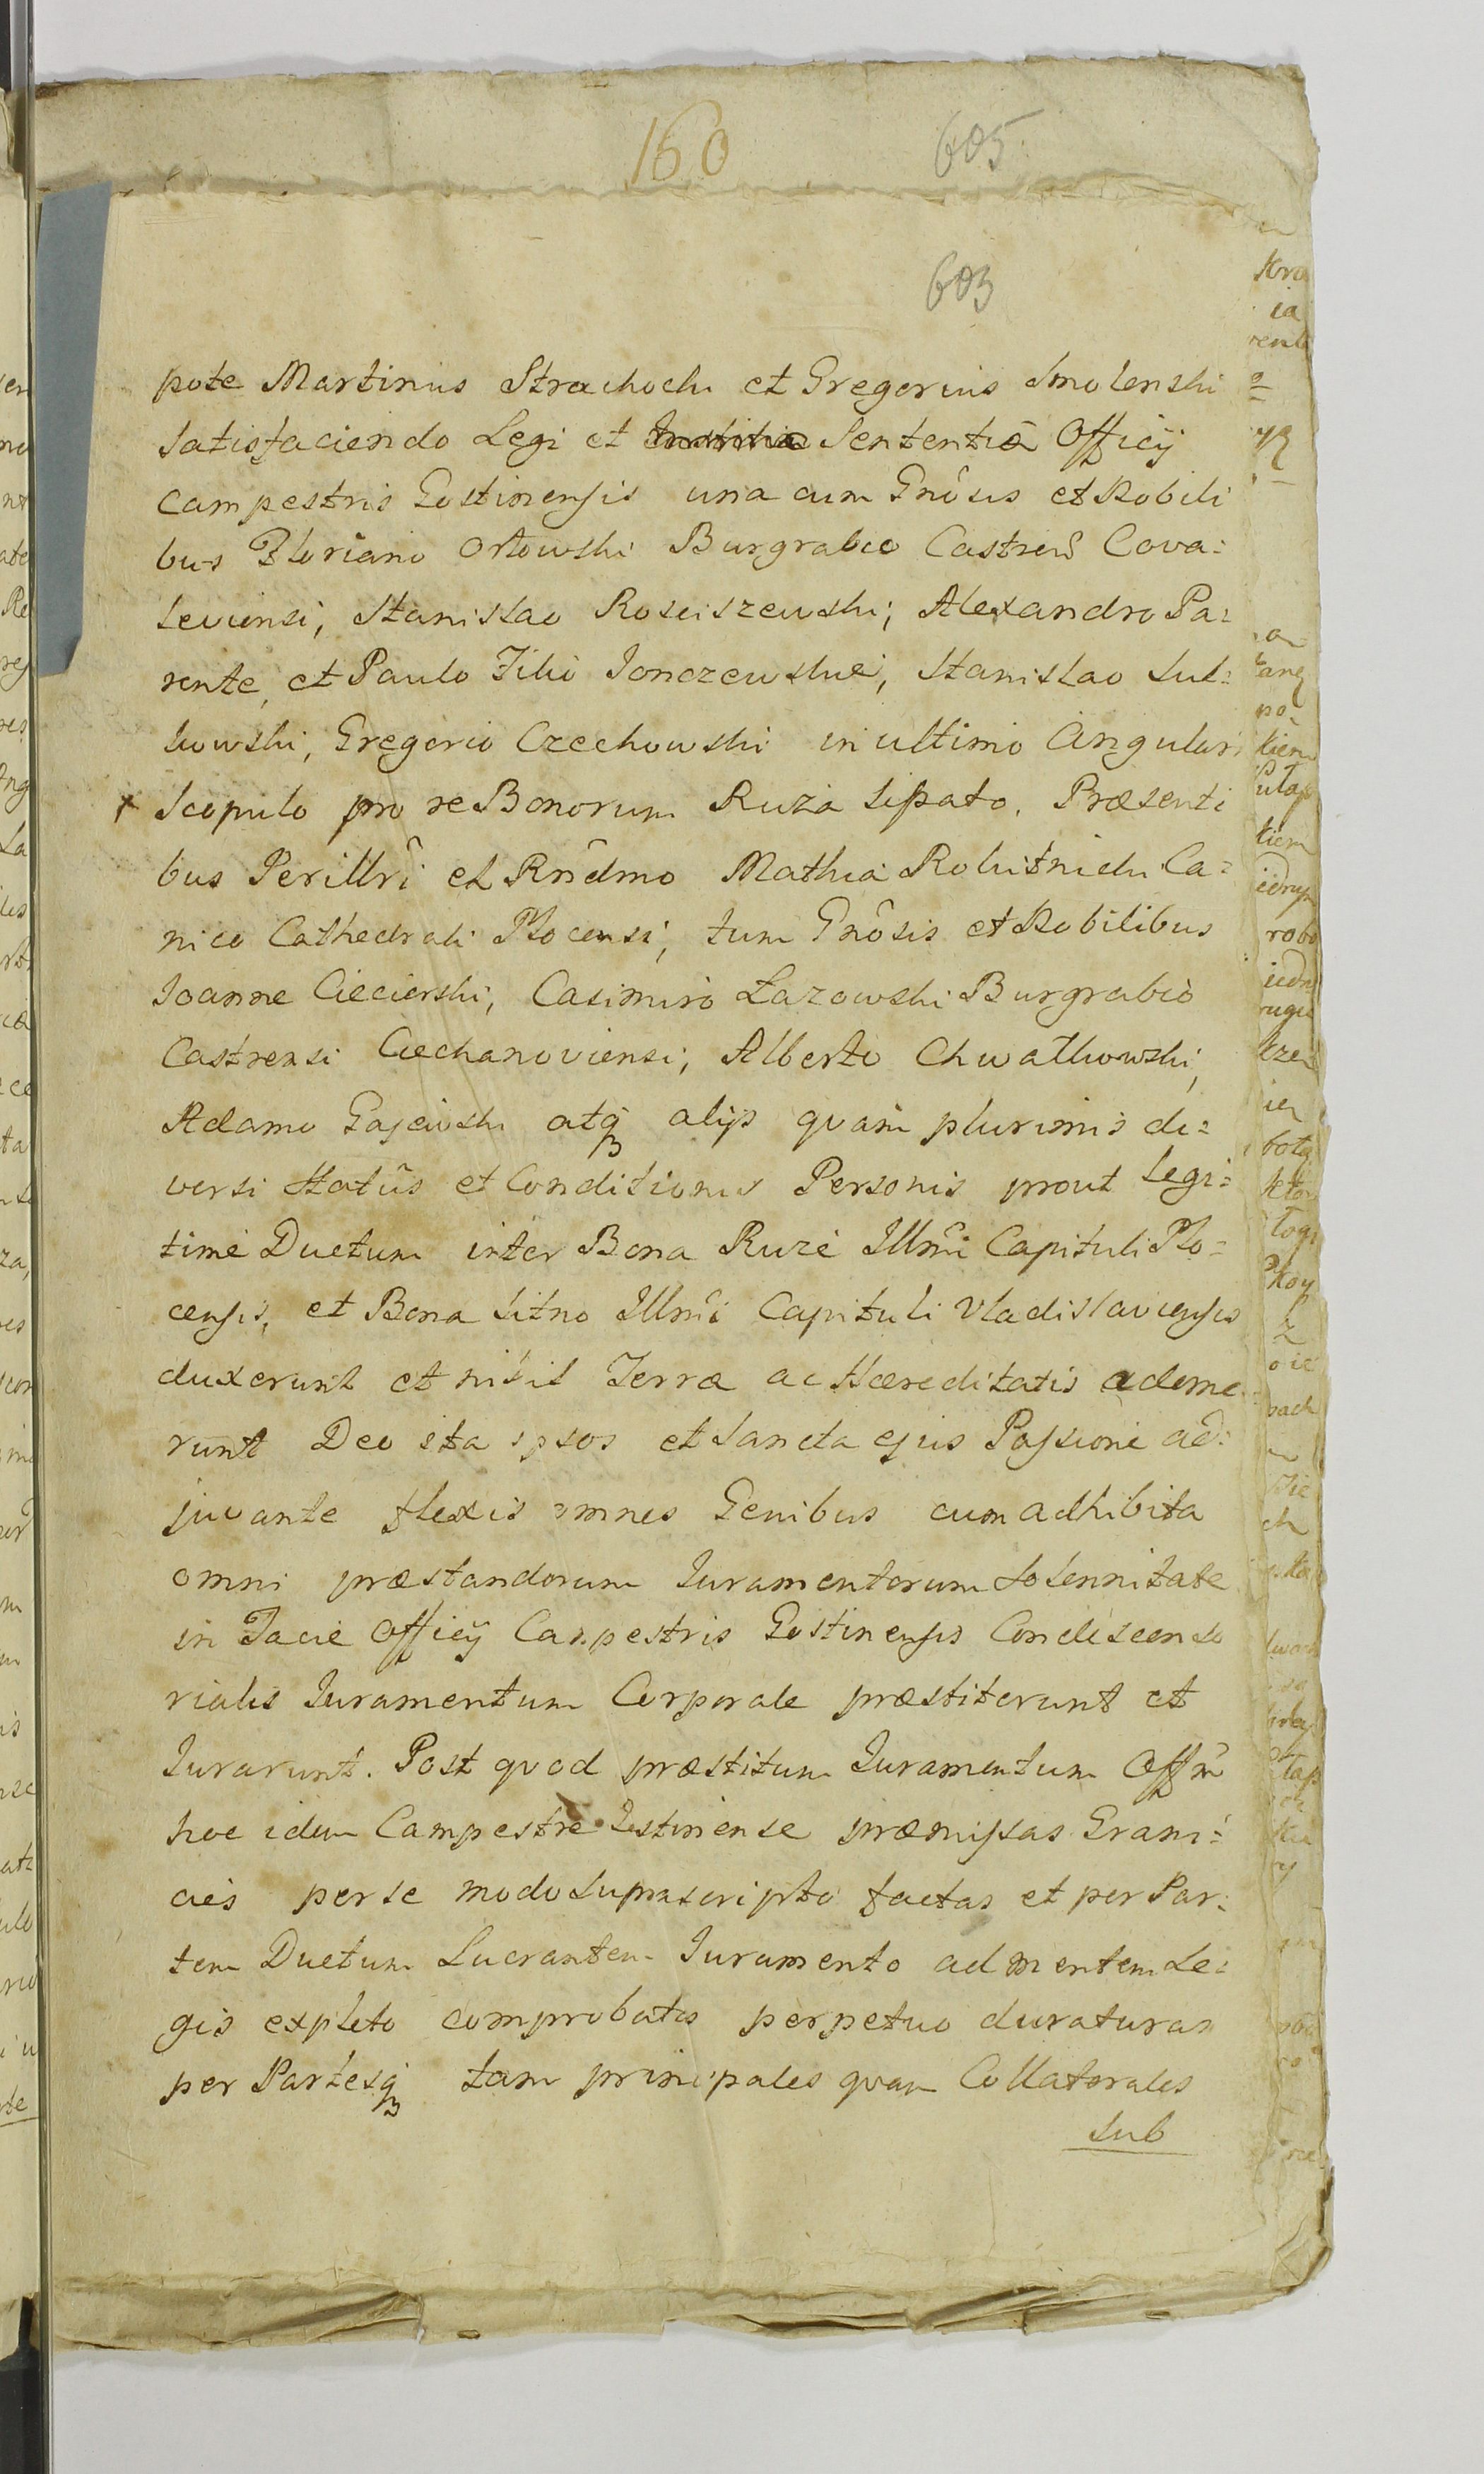 160 605
603
pote Martinus Strachocki et Gregorius Smolenski
Satisfaciendo Legi et Sententiæ Officÿ
Campestris Gostinensis una cum Gnôsis et Nobili
bus Floriano Orłowski Burgrabio Castreñ Cova=
leviensi, Stanislao Rosciszewski, Alexandro Pa=
rente, et Paulo Filio Jonczewskie, Stanislao Sul=
kowski, Gregorio Czechowski in ultimo Angulari
+ Scopulo pro re Bonorum Ruża Sipato. Præsenti
bus Perillrî et Rndmo Mathia Rokitnicki Ca=
nico Cathedrali Płocensi, tum Gnôsis et Nobilibus
Joanne Ciecierski, Casimiro Łazowski Burgrabio
Castrensi Ciechanoviensi, Alberto Chwałkowski,
Adamo Gajewski atq alijs quam plurimis di=
versi Statûs et Conditionis Personis prout Legi=
time Ductum inter Bona Ruże Illmi Capituli Pło=
censis, et Bona Sitno Illmi Capituli Vladislaviensis
duxerunt et nihil Terræ ac Hæreditatis ademe
runt Deo ita ipsos et Sancta ejus Passione ad=
juvante flexis omnes Genibus cum adhibita
omni præstandorum Juramentorum Solennitate
in Facie Officÿ Campestris Gostinensis Condescenso
rialis Juramentum Corporale præstiterunt et
Jurarunt. Post quod præstitum Juramentum Offm
hoc idem Campestre Gostinense præmissas Grani=
cies per se modo supra scripto factas et per Par=
tem Ductum Lucrantem Juramento ad mentem Le=
gis expleto comprobatas perpetuo duraturas
per Partesq tam principales quam Collaterales
Sub